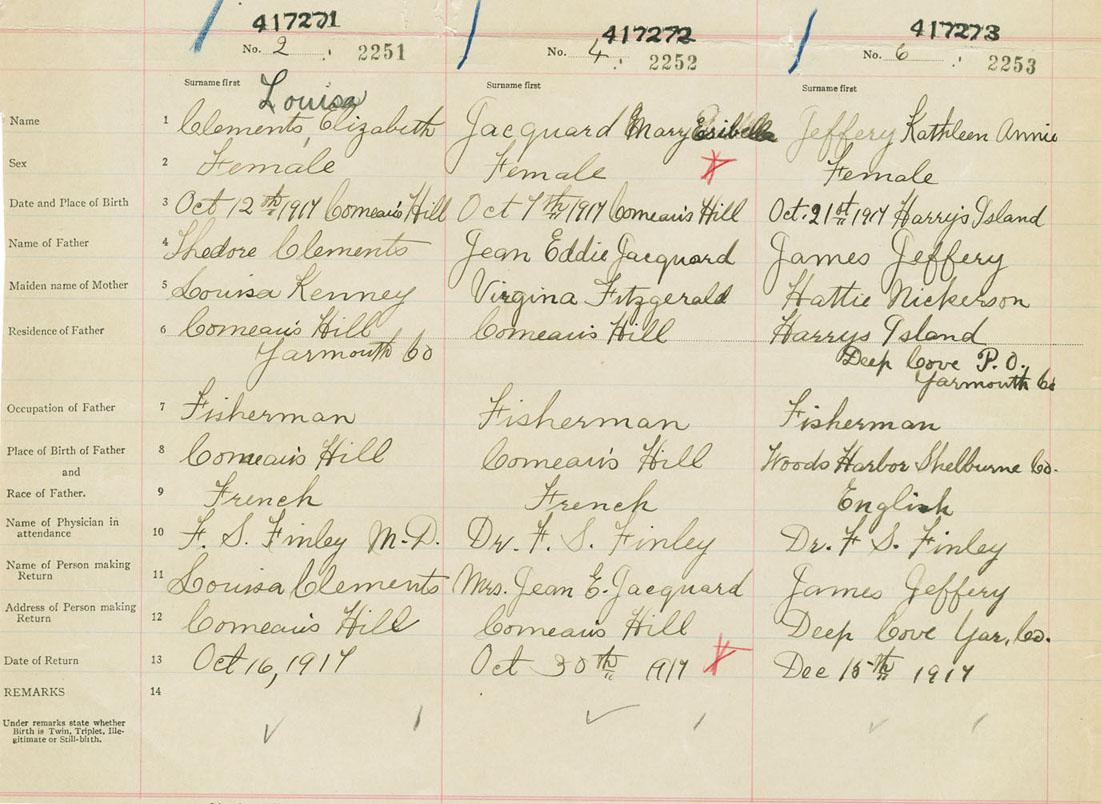 417271 417272 417273
No. 2 2251 No. 4 2252 No. 6 2253
Surname first Surname first Surname first
Louisa
Name 1 Clements, Elizabeth Jacquard Mary Jeffery Kathleen Annie
Sex 2 Female Female Female
Date and Place of Birth 3 Oct 12th 1917 Comeau's Hill Oct 7th 1917 Comeau's Hill Oct. 21st 1917 Harry's Island
Name of Father 4 Thedore Clements Jean Eddie Jacquard James Jeffery
Maiden name of Mother 5 Louisa Kenney Virgina Fitzgerald Hattie Nickerson
Residence of Father 6 Comeau's Hill Comeau's Hill Harrys Island
Yarmouth Co Deep Cove P.O.,
Yarmouth Co
Occupation of Father 7 Fisherman Fisherman Fisherman
Place of Birth of Father 8 Comeau's Hill Comeau's Hill Woods Harbor Shelburne Co.
and
Race of Father. 9 French French English
Name of Physician in
attendance 10 F. S. Finley M.D. Dr. F. S. Finley Dr. F S. Finley
Name of Person making
Return 11 Louisa Clements Mrs. Jean E. Jacquard James Jeffery
Address of Person making
Return 12 Comeau's Hill Comeau's Hill Deep Cove Yar, Co.
Date of Return 13 Oct 16, 1917 Oct 30th 1917 Dec 15th 1917
REMARKS 14
Under remarks state whether
Birth is Twin, Triplet, Ille-
gitimate or Still-bith.